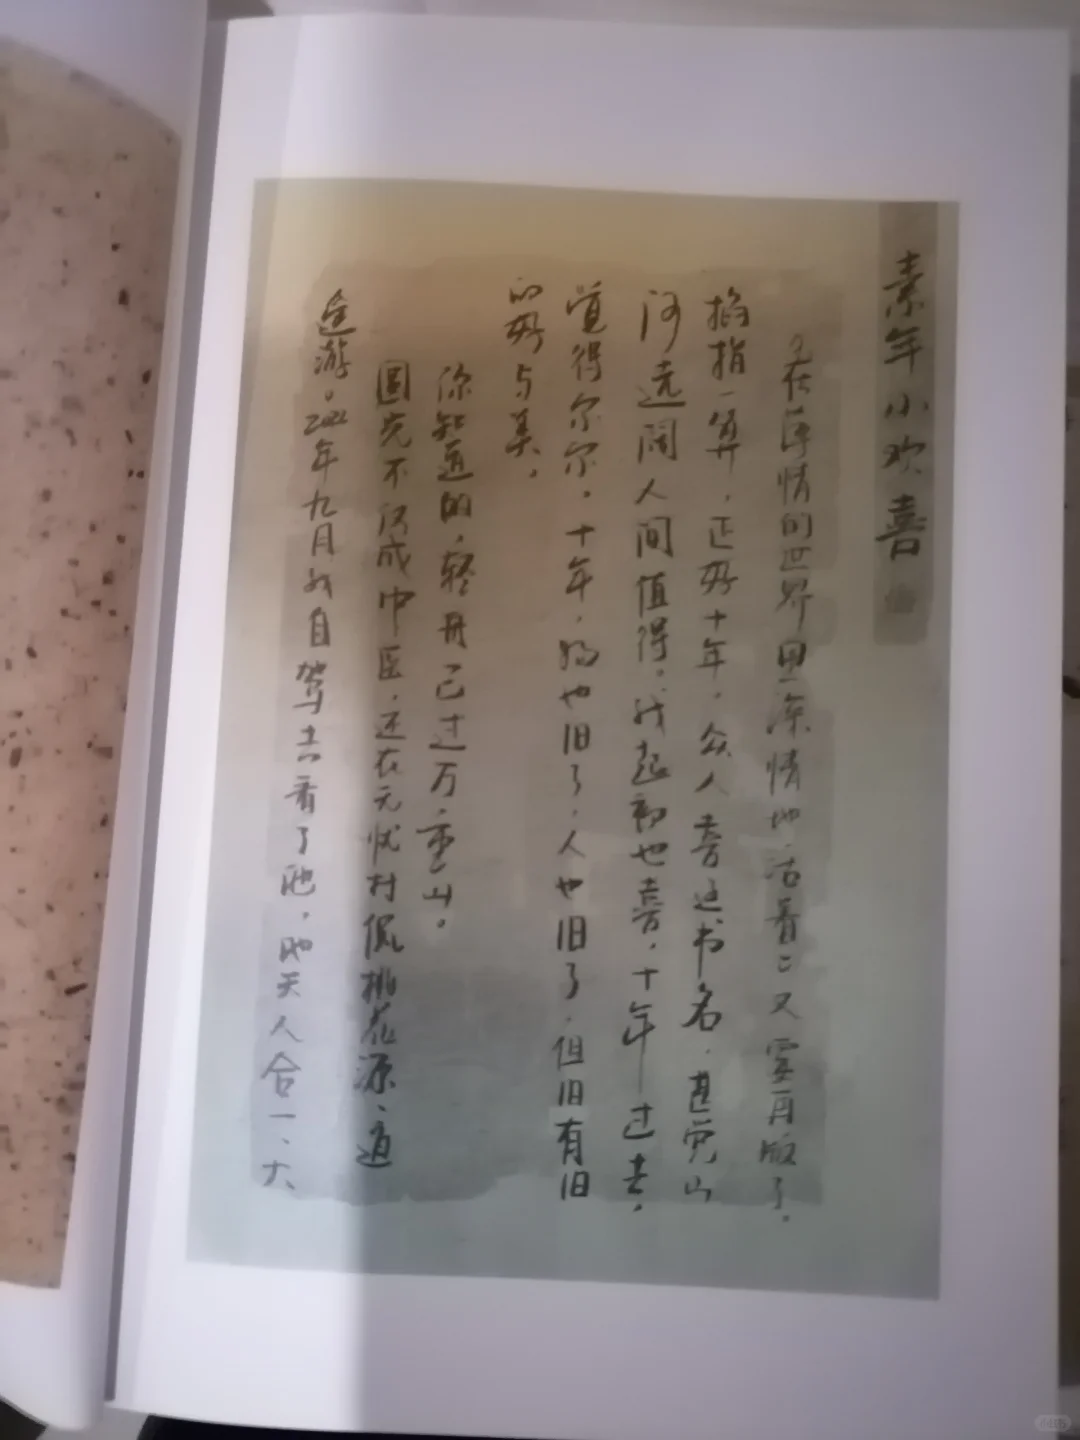 素年小欢喜
《在薄情的世界里深情地活着》又要再版了。
掐指一算，正好十年。众人喜这书名，甚觉山
河远阔人间值得。我起初也喜，十年一过去，
觉得尔尔。十年，物也旧了，人也旧了，但旧有旧
的好与美。
你知道的，轻舟已过万重山。
圆光不仅成中医，还在无忧村侃桃花源、逍
遥游。2022年九月我自驾去看了他，他天人合一、大